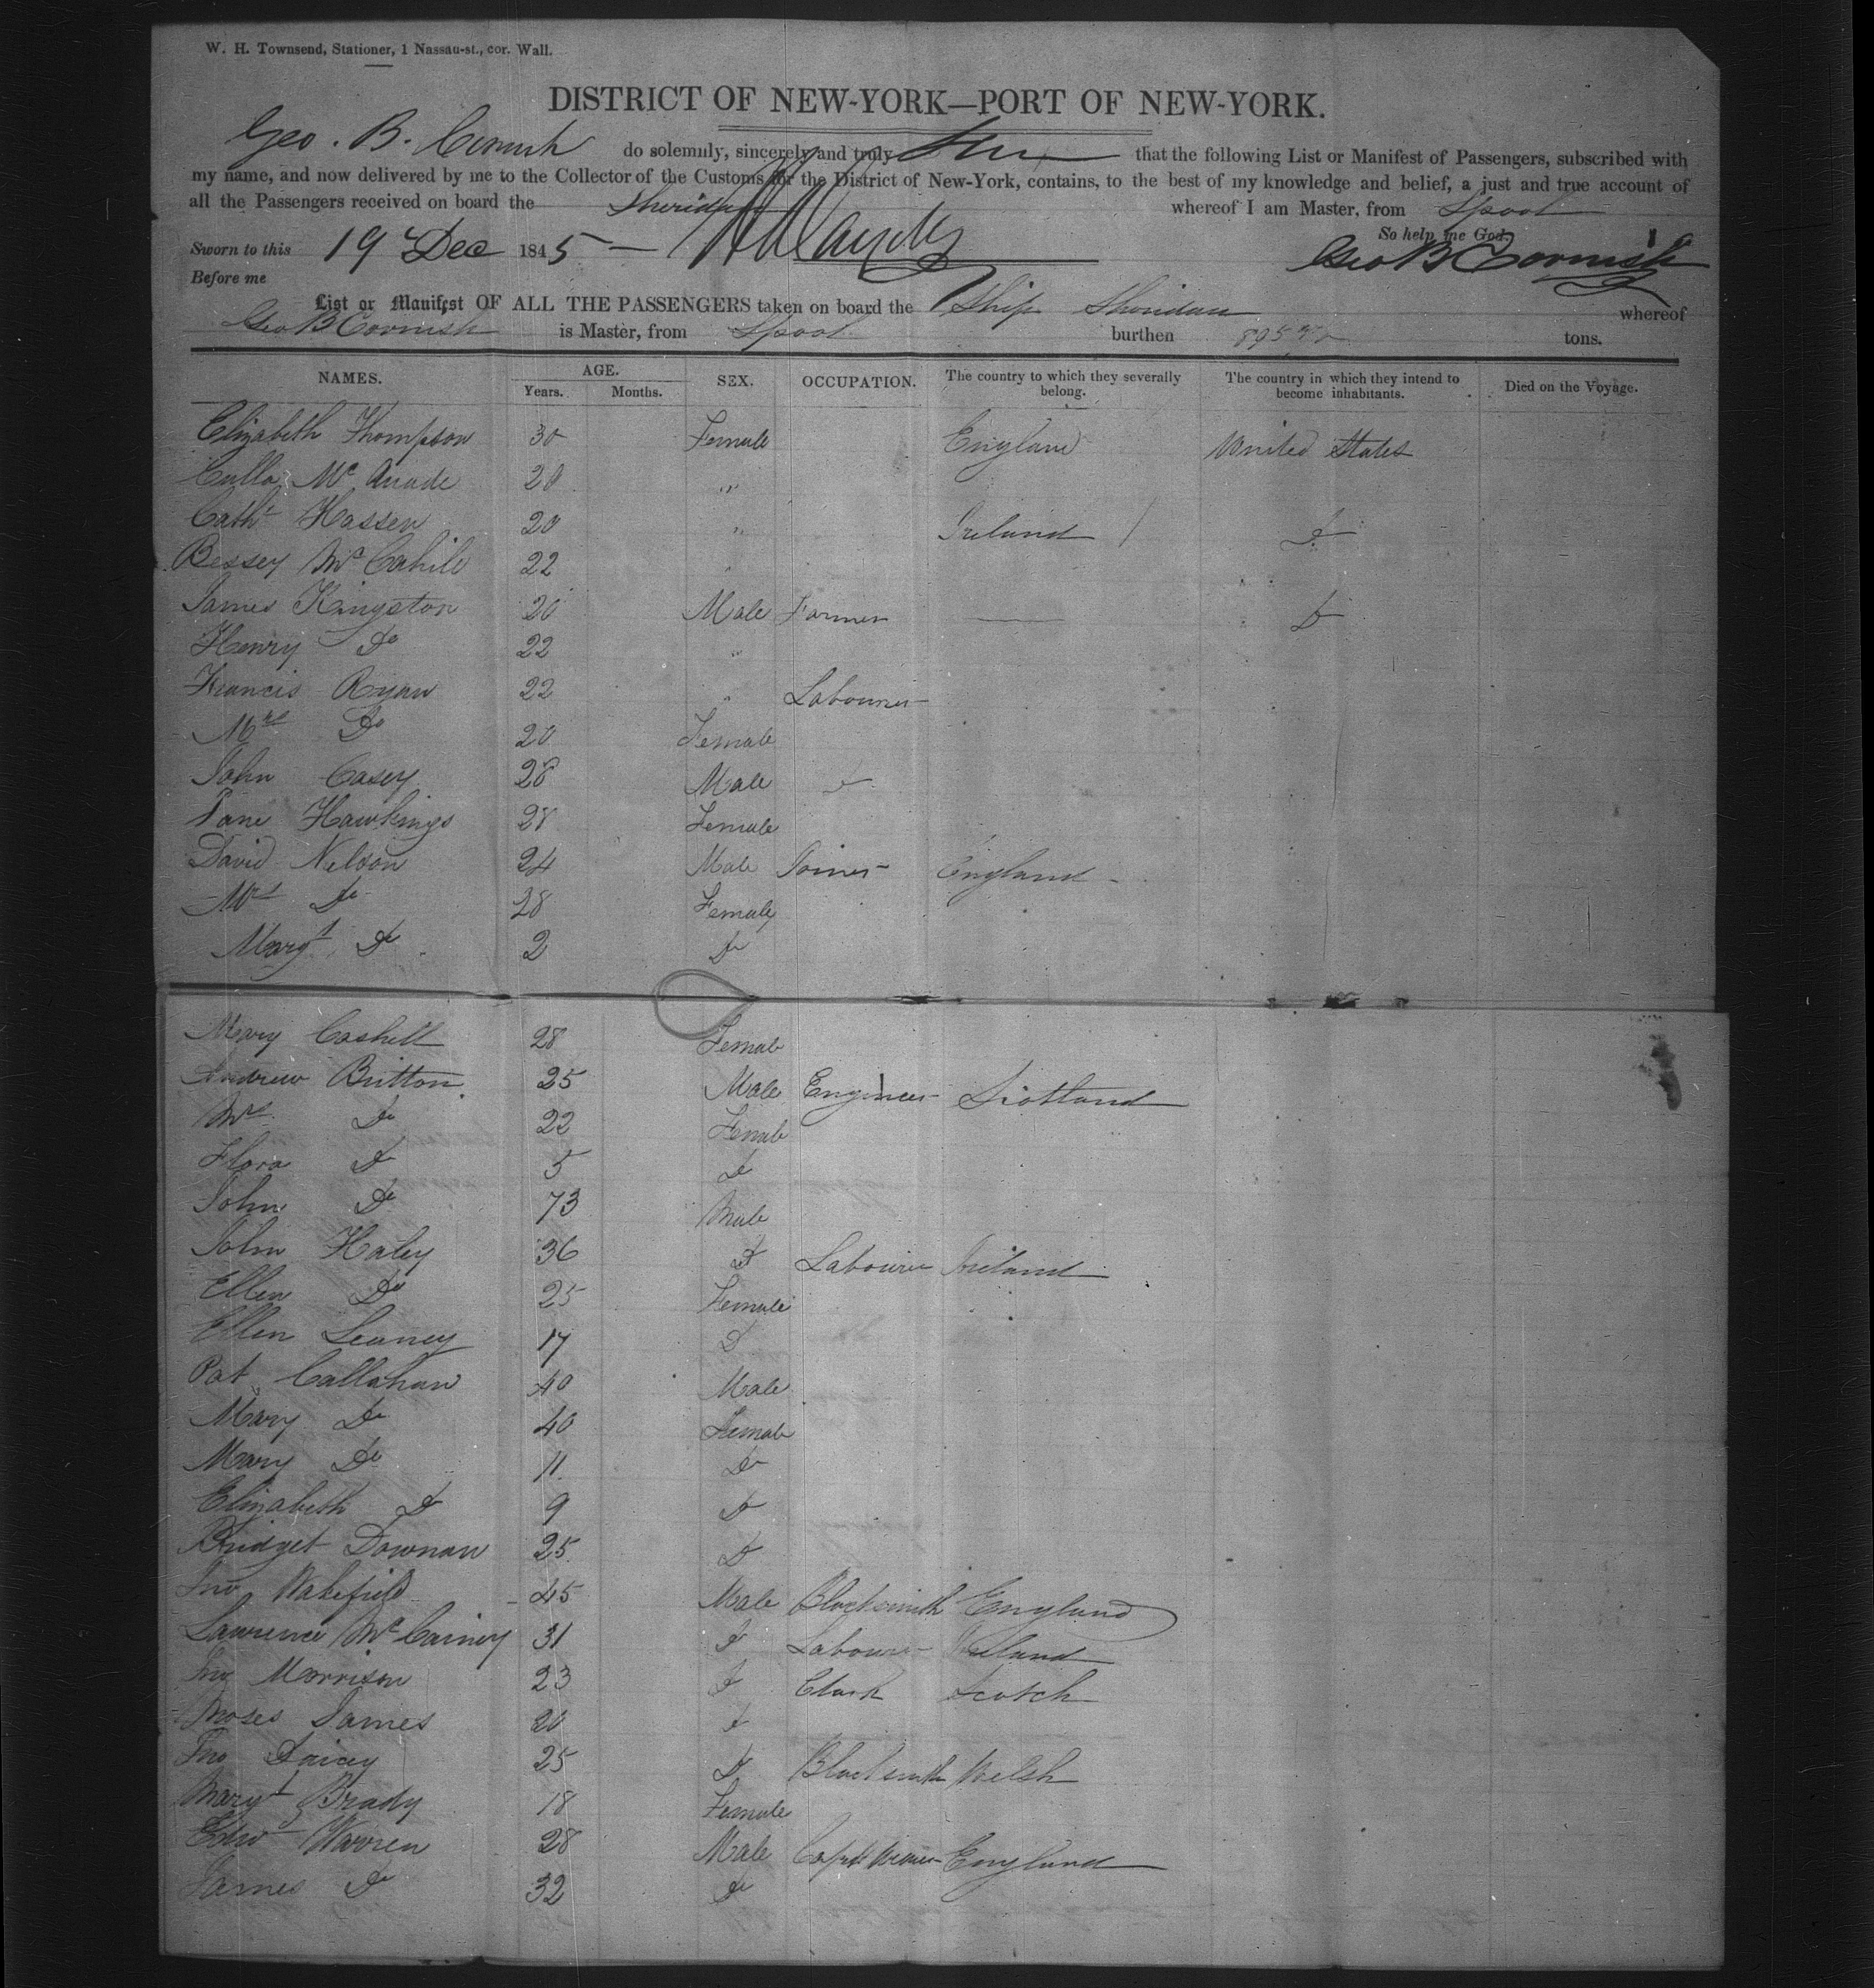 W. H. Townsend, Stationer, 1 Nassau-st., cor. Wall.
DISTRICT OF NEW-YORK—PORT OF NEW-YORK.
Geo. B. Cornish do solemnly, sincerely and truly that the following List or Manifest of Passengers, subscribed with
my name, and now delivered by me to the Collector of the Customs for the District of New-York, contains, to the best of my knowledge and belief, a just and true account of
all the Passengers received on board the Sheridan whereof I am Master, from Lpool
So help me God.
Sworn to this 19 Dec 1845 Geo B Cornish
Before me
List or Manifest OF ALL THE PASSENGERS taken on board the Ship Sheridan whereof
Geo B Cornish is Master, from Lpool burthen 895 tons.
NAMES. AGE. SEX. OCCUPATION. The country to which they severally belong. The country in which they intend to become inhabitants. Died on the Voyage.
Years. Months.
Elizabeth Thompson 30 Female England United States
Mc 20 "
Cath Hassen 20 " Ireland Do
Bessey Mc Cahill 22 "
James Kingston 20 Male Farmer Do
Henry Do 22 "
Francis Ryan 22 " Labourer
Mrs Do 20 Female
John Casey 28 Male
Jane Hawkings 28 Female
David Nelson 24 Male Joiner England
Mrs Do 28 Female
Margt Do 2 Do
Mary Cashell 28 Female
Andrew Britton 25 Male Engineer Scotland
Mrs Do 22 Female
Flora Do 5 Do
John Do 73 Male
John Haley 36 Do Labourer Ireland
Ellen Do 25 Female
Ellen Leaney 17 Do
Pat Callahan 40 Male
Mary Do 40 Female
Mary Do 11 Do
Elizabeth Do 9 Do
Bridget Downan 25 Do
Jno Wakefield 45 Male Blacksmith England
Lawrence Mc Cainey 31 Do Labourer Ireland
Jno Morrison 23 Do Clark Scotch
Moses James 20 Do
Jno 25 Do Blacksmith Welsh
Margt Brady 18 Female
Edwd Warren 28 Male England
James Do 32 Do